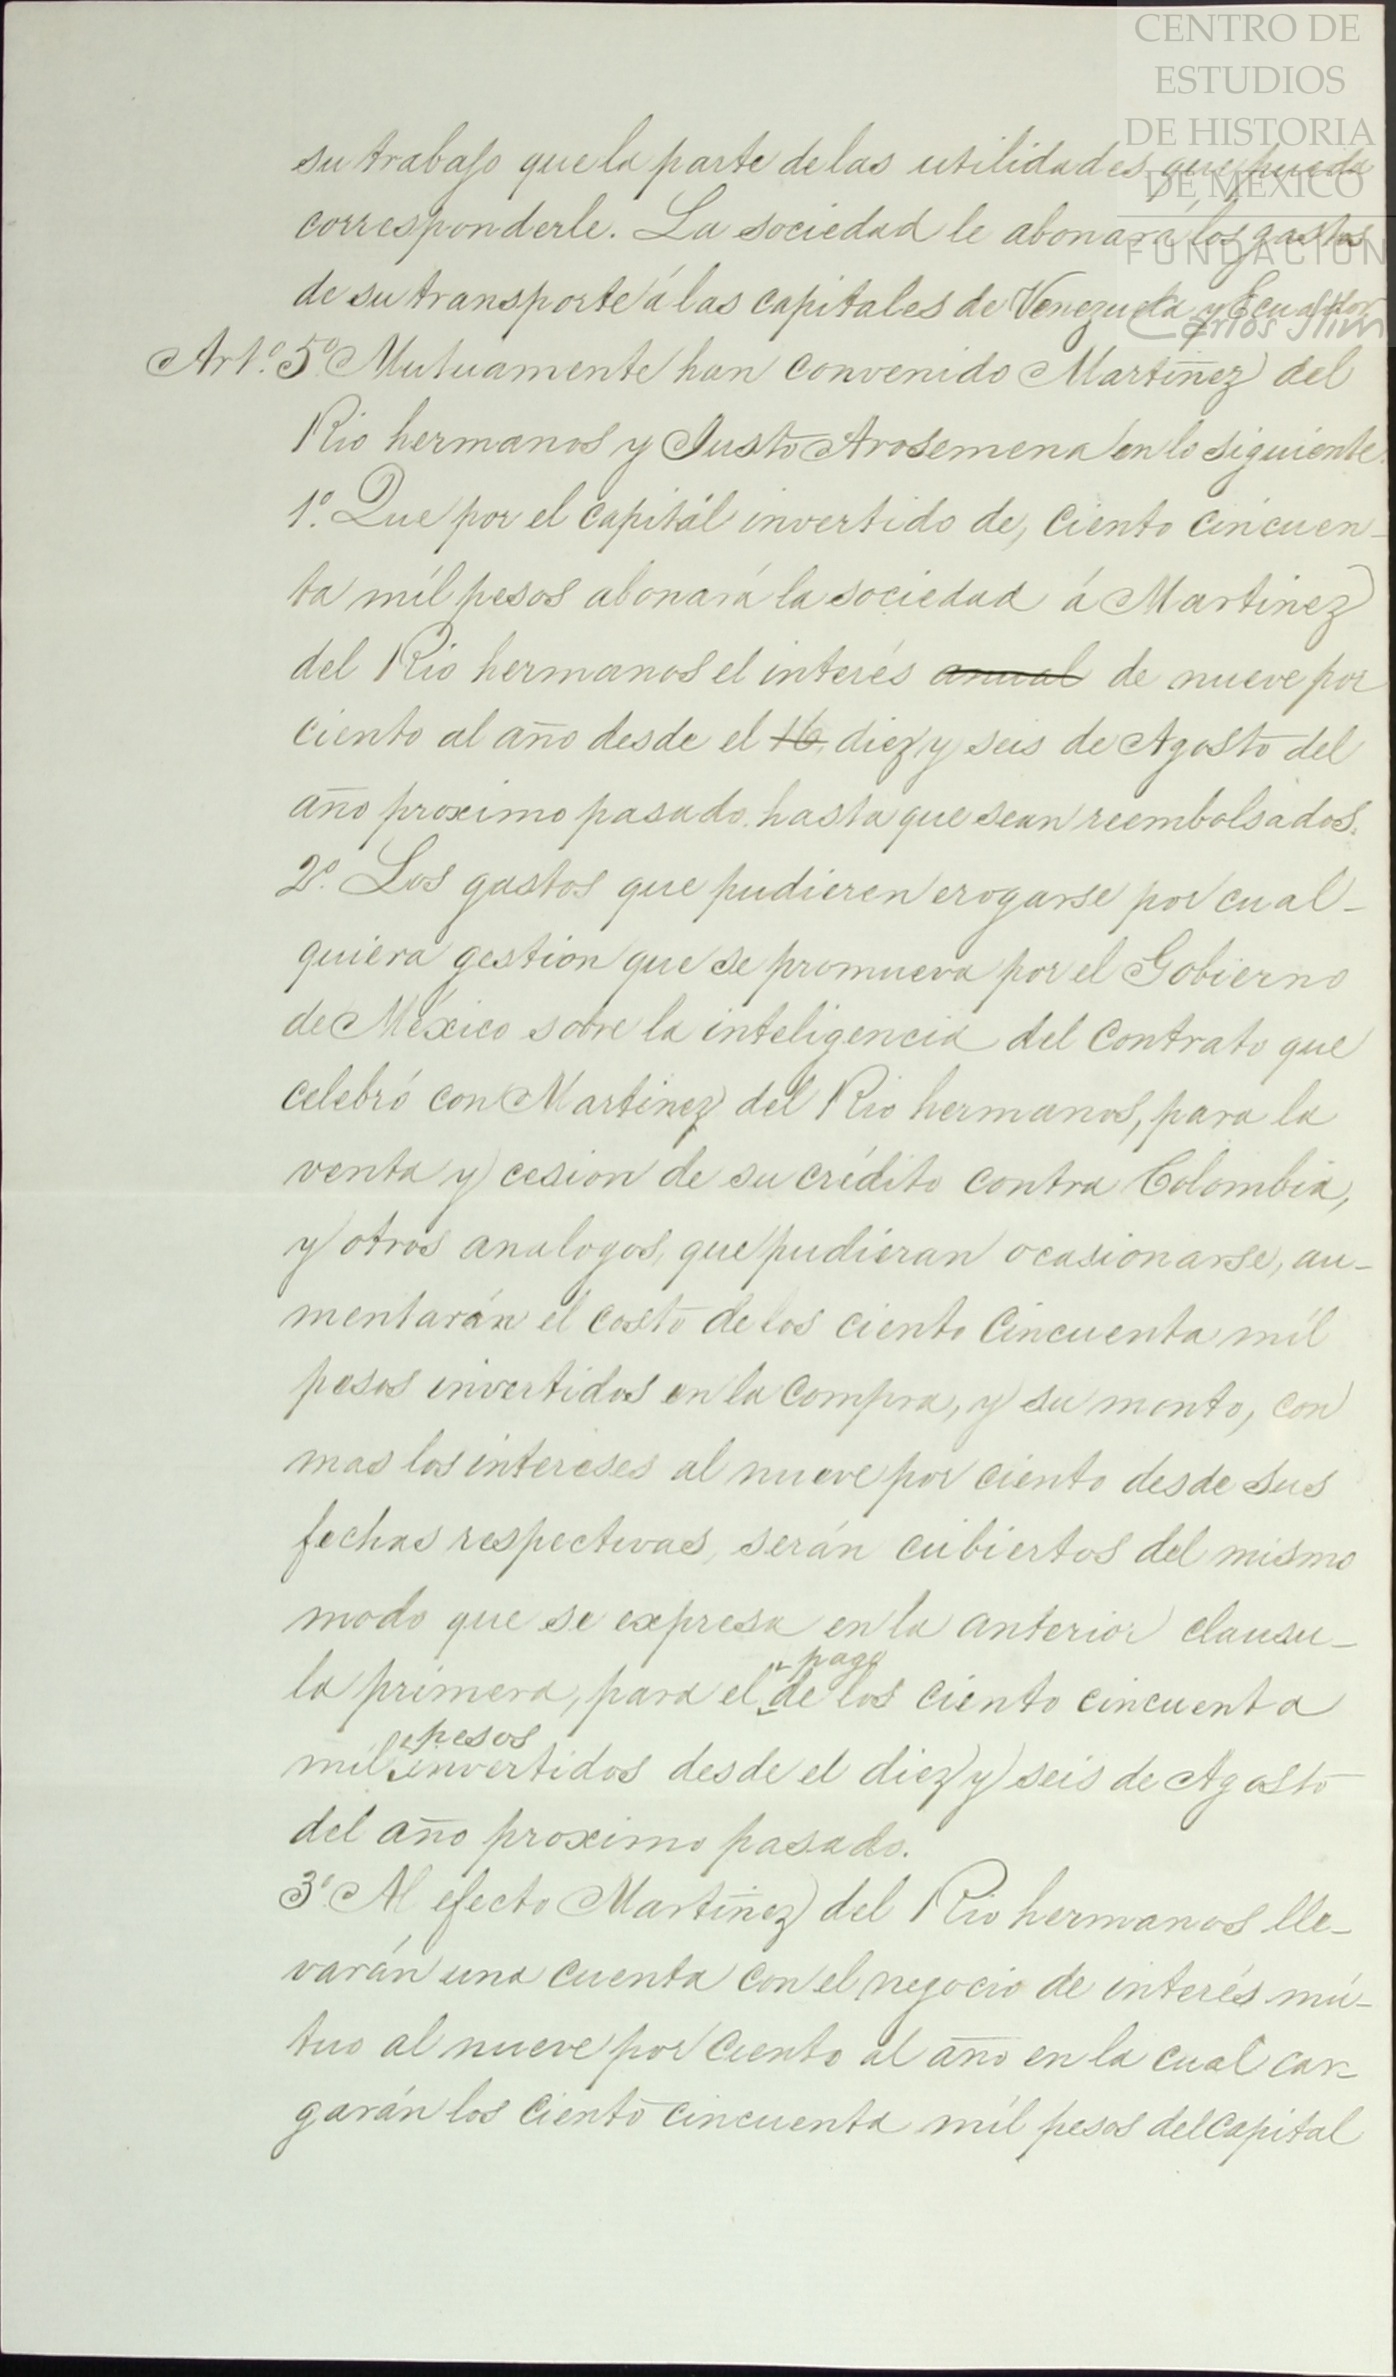 CENTRO DE
ESTUDIOS
DE HISTORIA
DE MÉXICO
FUNDACIÓN
Carlos Slim
su trabajo que la parte de las utilidades que pueda
corresponderle. La sociedad le abonará los gastos
de su transporte á las capitales de Venezuela y Ecuador
Art.º 5º Mutuamente han convenido Martinez del
Rio hermanos y Justo Arosemena en lo siguiente.
1º. Que por el capitál invertido de, ciento cincuen-
ta mil pesos abonará la sociedad á Martinez
del Rio hermanos el interés anual de nueve por
ciento al año desde el 16, diez y seis de Agosto del
año proximo pasado, hasta que sean reembolsados.
2º. Los gastos que pudieren erogarse por cual-
quiera gestion que se promueva por el Gobierno
de México sobre la inteligencia del contrato que
celebró con Martinez del Rio hermanos, para la
venta y cesion de su crédito contra Colombia,
y otros analogos, que pudieran ocasionarse, au-
mentarán el costo de los ciento cincuenta mil
pesos invertidos en la compra, y su monto, con
mas los intereses al nueve por ciento desde sus
fechas respectivas, serán cubiertos del mismo
modo que se expresa en la anterior clausu-
la primera, para el pago de los ciento cincuenta
mil pesos invertidos desde el diez y seis de Agosto
del año proximo pasado.
3º. Al efecto Martinez del Rio hermanos lle-
varán una cuenta con el negocio de interés mú-
tuo al nueve por ciento al año en la cual car-
garán los ciento cincuenta mil pesos del capital